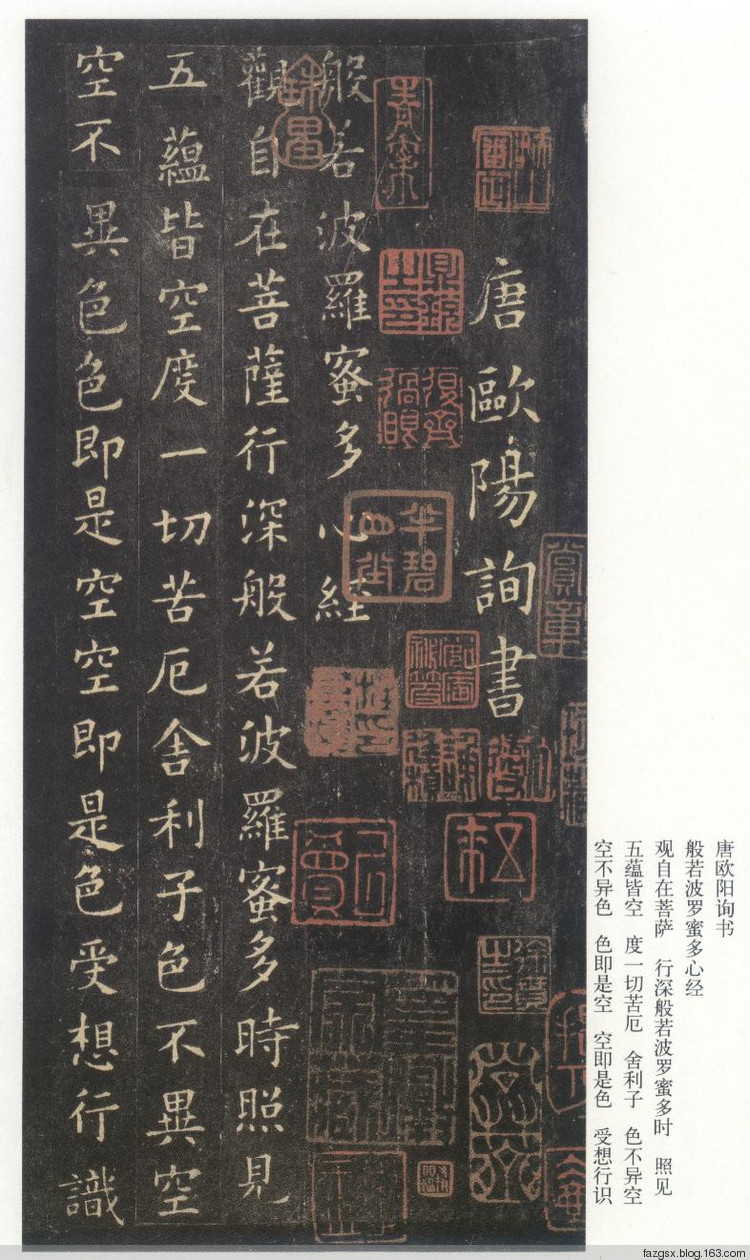 唐歐陽詢書
般若波羅蜜多心経
觀自在菩薩行深般若波羅蜜多時照見
五蘊皆空度一切苦厄舍利子色不異空
空不異色色即是空空即是色受想行識
唐欧阳询书
般若波罗蜜多心经
观自在菩萨 行深般若波罗蜜多时 照见
五蕴皆空 度一切苦厄 舍利子 色不异空
空不异色 色即是空 空即是色 受想行识
fazgsx.blog.163.com